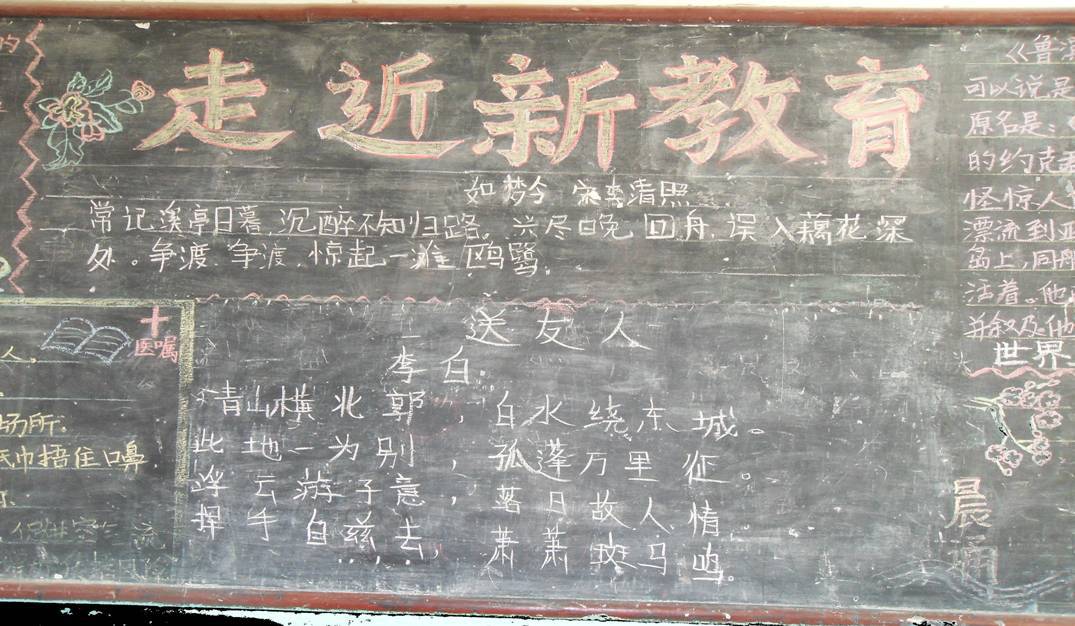 走近新教育
如梦令 宋李清照
常记溪亭日暮,沉醉不知归路,兴尽晚回舟,误入藕花深
处。争渡,争渡,惊起一滩鸥鹭。
送友人
李白
青山横北郭,白水绕东城。
此地一为别,孤蓬万里征。
浮云游子意,落日故人情
挥手自兹去,萧萧斑马鸣。
的
医嘱
人,
场所,
纸巾捂住口鼻
流
《鲁滨
可以说是
原名是:
的约克
怪惊人
漂流到
岛上,同船
活着。他
并叙及他
世界
晨诵